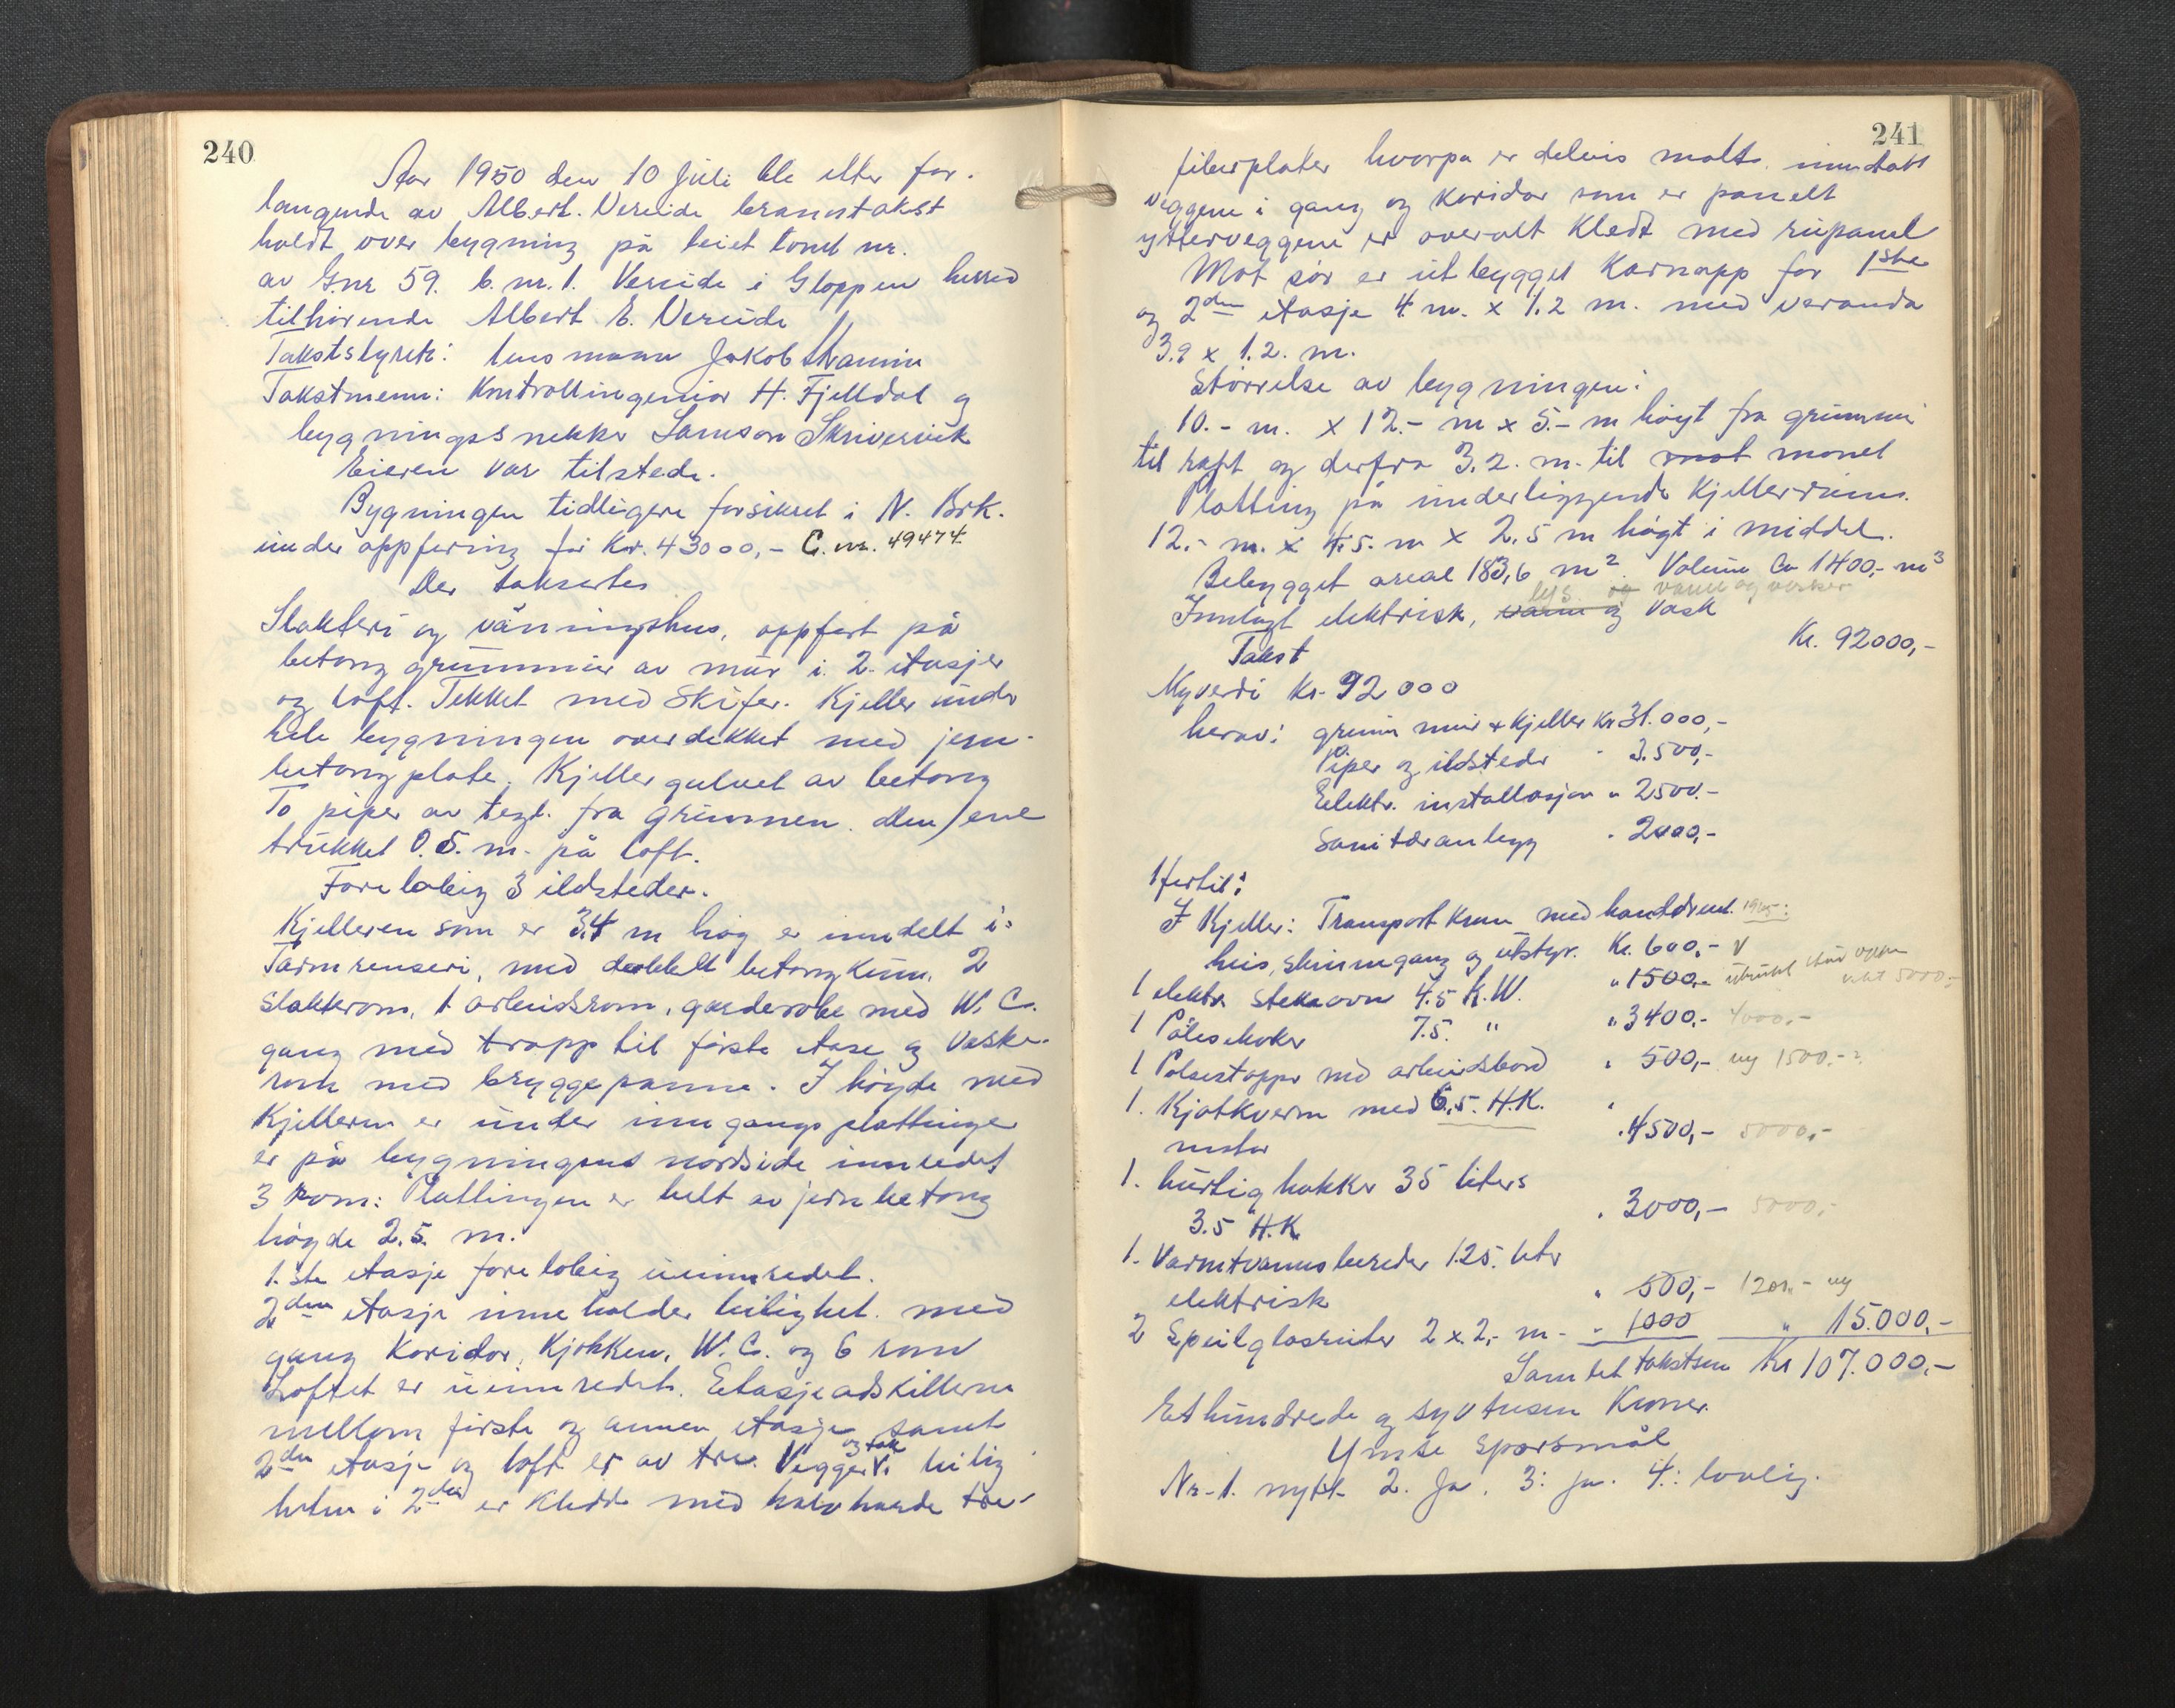 240
Aar 1950 den 10 Juli ble etter for-
langende av Albert. Vereide branntakst
holdt over bygning på leiet tomt nr.
av G.nr 59. b.nr. 1. Vereide i Gloppen herred
tilhørende Albert E. Vereide
Takststyret: lensmann Jakob
Takstmenn: Kontrollingeniør H. Fjelldal og
bygningssnekker Samson Skrivervik
Eieren var tilstede.
Bygningen tidligere forsikret i N. Brk.
under oppføring for Kr. 43000,- C. nr. 49474
Der taksertes
Slakteri og våningshus, oppført på
betong grunnmur av mur i 2. etasjer
og Loft. Tekket med Skifer. Kjeller under
hele bygningen overdekket med jern-
betong plate. Kjeller gulvet av betong
To piper av tegl. fra grunnen. den ene
trukket 0.5. m. på loft.
Foreløbig 3 ildsteder.
Kjelleren som er 3,4 m høg er inndelt i:
Tarmrenseri, med dobbelt betongkum, 2
slakterom, 1 arbeidsrom, garderobe med W. C.
gang med trapp til første etase og vaske-
rom med bryggepanne. I høyde med
Kjelleren er under inngangs plattinger
er på bygningens nordside innredet
3 Rom: Plattingen er helt av jernbetong
høyde 2.5. m.
1.ste etasje foreløbig uinnredet.
2den etasje inneholder leilighet med
gang Koridor, Kjøkken, W. C. og 6 rom
Loftet er uinnredet. Etasjeadskillerne
mellom første og annen etasje samt
og tak
2den etasje og loft er av tre. Vegger i leilig
heten i 2den er kledde med halvharde tre-
241
fiberplater hvorpå er delvis malt. inntatt
veggene i gang og Koridor som er panelt
ytterveggene er overalt kledt med rupanel
Mot sør er utbygget Karnapp for 1ste
og 2den etasje 4. m. x 1.2 m. med veranda
3.9 x 1.2. m.
Størrelse av bygningen:
10.- m. x 12.- m x 5.- m høgt fra grunnmur
til raft og derfra 3.2. m. til mot mønet
Platting på underliggende Kjellerrum.
12.- m. x 4.5. m x 2,5 m høgt i middel.
Bebygget areal 183,6 m2. Volum Ca 1400,- m3
lys og varme og vasker
Innlagt elektrisk, varme og vask
Takst Kr. 92000,-
Nyverdi Kr. 92 000
herav: grunn mur + kjeller Kr 31.000,-
Piper og ildsteder " 3.500,-
Elektr. installasjon " 2500.-
Sanitæranlegg " 2000,-
Hertil:
I Kjeller: Transport Kran med hånddrevet 1965:
heis, skinnegang og utstyr. Kr. 600.- V
1 elektr. stekeovn 4.5 K.W. " 1500.-
1 Pølsekoker 7.5. " " 3400.- 4000.-
1 Pølsestopper med arbeidsbord " 500,- ny 1500.-?
1. Kjøtkvern med 6,5. H.K.
motor " 4500,- 5000,-
1. hurtighakker 35 liters
3.5 H.K. " 3000,- 5000,-
1. Varmtvannsbereder 125. liter
elektrisk " 500,- 1200,- ny
2 Speilglasruter 2 x 2,- m - " 1000 " 15.000,-
Samlet takstsum Kr 107.000,-
Ethundrede og syvtusen Kroner.
Ymse spørsmål
Nr. 1. nytt. 2. Ja. 3: ja. 4.: lovlig.